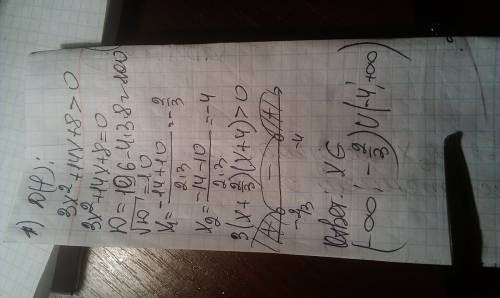 1) D(f):
3x²+14x+8>0
3x²+14x+8=0
D=196-4·3·8=100
√10=10
x₁= -14+10 / 2·3 =-2/3
x₂= -14-10 / 2·3 =-4
3(x+2/3)(x+4)>0
+ - +
-2/3 -4
Ответ: x∈
(-∞; -2/3)∪(-4; +∞)